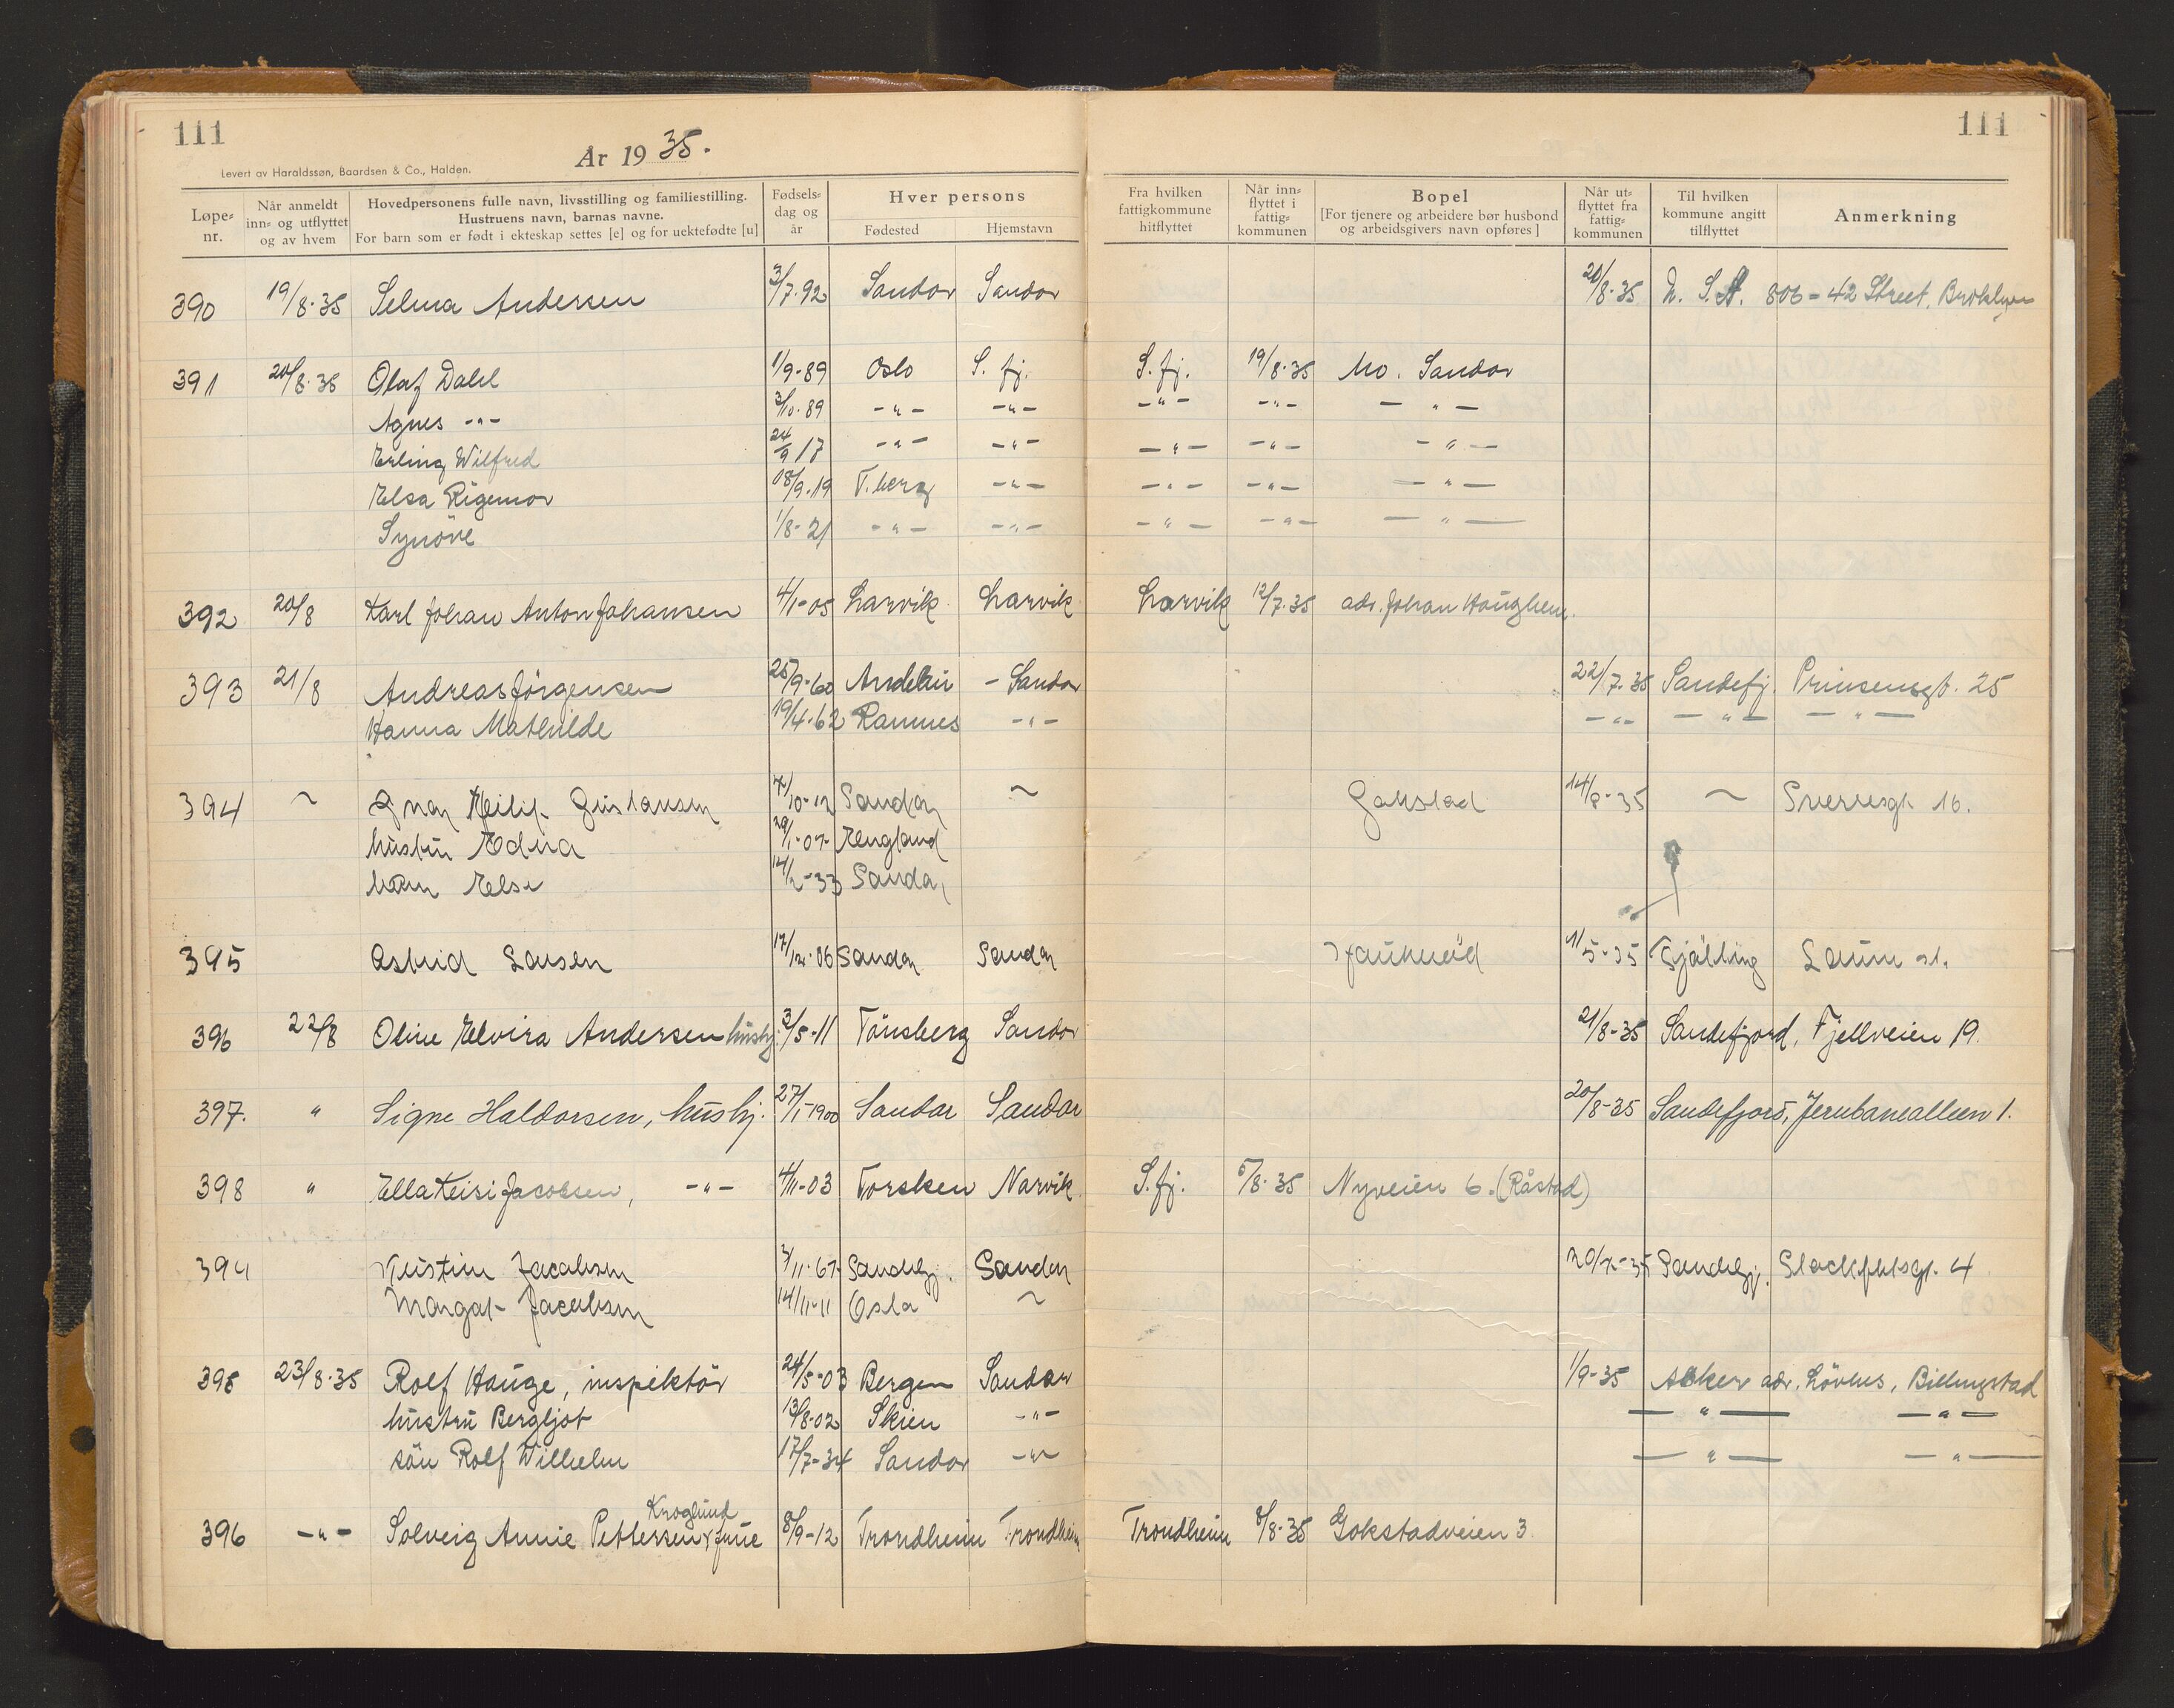 111
År 1935.
Levert av Haraldssøn, Baardsen & Co., Halden.
111
Løpe-nr.
Når anmeldt inn- og utflyttet og av hvem
Hovedpersonens fulle navn, livsstilling og familiestilling.
Hustruens navn, barnas navne.
For barn som er født i ekteskap settes [e] og for uektefødte [u]
Fødsels-dag og år
Hver persons
Fødested Hjemstavn
Fra hvilken fattigkommune hitflyttet
Når inn-flyttet i fattig-kommunen
Bopel
[For tjenere og arbeidere bør husbond og arbeidsgivers navn opføres]
Når ut-flyttet fra fattig-kommunen
Til hvilken kommune angitt tilflyttet
Anmerkning
390 19/8-35 Selma Andersen 3/7-92 Sandar Sandar 20/8-35 U.S.A. 806-42 Street, Broklyn
391 20/8-35 Olaf Dahl 1/9-89 Oslo S. fj. S. fj. 19/8-35 Mo. Sandar
Agnes -"- 3/10-89 -"- -"- -"- -"- -"-
Erling Wilfred 24/9 17 -"- -"- -"- -"- -"-
Elsa Rigemor 18/9-19 T.berg -"- -"- -"- -"-
Synöve 1/8-21 -"- -"- -"- -"- -"-
392 20/8 Karl Johan Anton Johansen 4/1-05 Larvik Larvik Larvik 12/7-35 adr. Johan Haughem.
393 21/8 Andreas Jörgensen 25/9-60 Andebu - Sandar 22/7-35 Sandefj. Prinsensgt. 25
Hanna Mathilde 19/4-62 Ramnes -"- -"- -"- -"-
394 ~ Gustavsen 10-12 Sandar ~ Gokstad 14/8-35 ~ Sverresgt. 16.
hustru Edna England
barn Else -33 Sandar
395 Astrid Larsen 17/12-06 Sandar Sandar 1/5-35 Lauve st.
396 22/8 Oline Elvira Andersen hushj. 3/5-11 Tönsberg Sandar 21/8-35 Sandefjord, Fjellveien 19.
397. " Signe Haldorsen, hushj. 27/1-1900 Sandar Sandar 20/8-35 Sandefjord, Jernbanealleen 1.
398 " Ella Keisi Jacobsen, -"- 4/11-03 Torsken Narvik S.fj. 5/8-35 Nyveien 6. (Råstad)
394 Kristine Jacobsen 3/11-67 Sandefj. Sandar Sandefj. 4
Margat Jacobsen 14/11-11 Oslo ~
395 23/8-35 Rolf Hauge, inspektör 24/5-03 Bergen Sandar 1/9-35 Asker adr. Lövhus, Billingstad
hustru Bergljot 13/8-02 Skien -"- -"- -"-
sön Rolf Wilhelm 17/7-34 Sandar -"- -"- -"-
Kroglund
396 -"- Solveig Annie Pettersen f Juue 8/9-12 Trondheim Trondheim Trondheim 8/8-35 Gokstadveien 3.